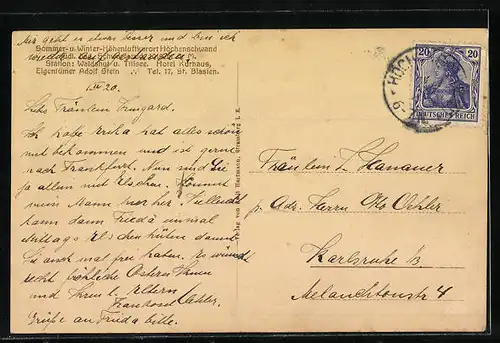 Mir geht es etwas besser und bin ich
wieder aufgestanden
Sommer- u. Winter-Höhenluftkurort Höchenschwand
Station: Waldshut u. Titisee. Hotel Kurhaus,
Eigentümer Adolf Stein Tel. 17, St. Blasien.
20.
Liebs Fräulein Irmgard.
Ich habe Erika hat alles schön
mit bekommen und ist gerne
nach Frankfurt. Nun sind Sie
ja allein mit Elschen. Kommt
mein Mann vorher. Vielleicht
kann dann Frieda einmal
mittags Elschen hüten damit
Sie auch mal frei haben. Es wünscht
recht fröhliche Ostern Ihnen
und Ihren l. Eltern
Frau Oehler.
Grüße an Frieda bitte.
Verlag von Hartmann, Strassburg i. E.
20 20
DEUTSCHES REICH
HÖCH
Fräulein L. Hanauer
p. Adr. Herrn Otto Oehler
Karlsruhe i/B
Melanchtonstr 4